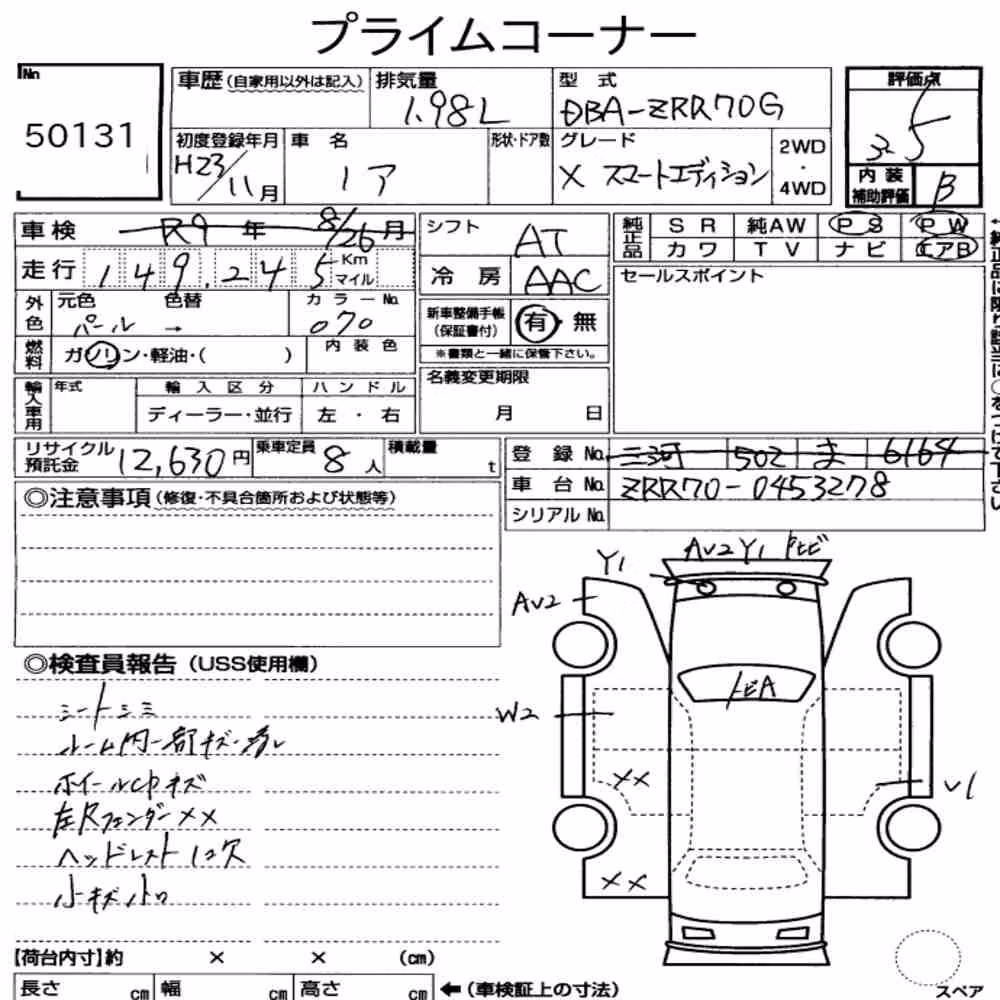 プライムコーナー
No
50131
車歴(自家用以外は記入)
排気量
1.98L
型式
DBA-ZRR70G
評価点
3.5
初度登録年月
H23/11月
車名
ノア
形状・ドア数
グレード
X スマートエディション
2WD
・
4WD
内装
補助評価
B
車検 R9年 8/26月
シフト
AT
純正品
SR 純AW PS PW
カワ TV ナビ エアB
走行 149,245 Km
マイル
冷房
AAC
セールスポイント
外色
元色 色替 カラーNo.
パール → 070
新車整備手帳
(保証書付)
有・無
※書類と一緒に保管下さい。
燃料
ガソリン・軽油・( )
内装色
名義変更期限
月 日
輸入車用
年式 輸入区分 ハンドル
ディーラー・並行 左・右
リサイクル
預託金
12,630円
乗車定員
8人
積載量
t
登録No. 三河 502 ま 6164
車台No. ZRR70-0453278
シリアルNo.
◎注意事項(修復・不具合箇所および状態等)
◎検査員報告(USS使用欄)
シートシミ
ルーム内一部キズ・汚レ
ホイールCPキズ
左Rフェンダー××
ヘッドレスト1コ欠
小キズ小凹
Y1
AV2 Y1 トビ
AV2
トビA
W2
××
V1
××
【荷台内寸】約 × × (cm)
長さ cm 幅 cm 高さ cm
←(車検証上の寸法)
スペア